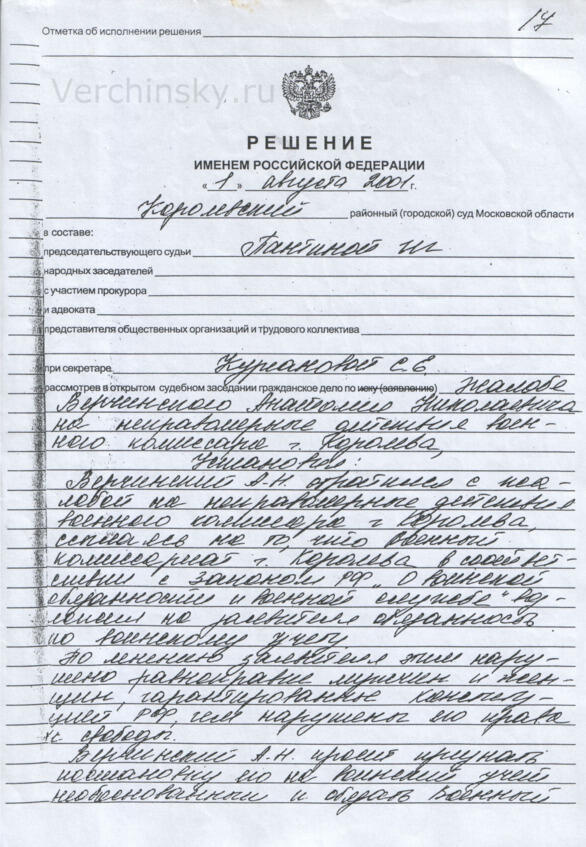 17
Отметка об исполнении решения
Verchinsky.ru
РЕШЕНИЕ
ИМЕНЕМ РОССИЙСКОЙ ФЕДЕРАЦИИ
« 1 » августа 2001 г.
Королевский районный (городской) суд Московской области
в составе:
председательствующего судьи Пантиной
народных заседателей
с участием прокурора
и адвоката
представителя общественных организаций и трудового коллектива
при секретаре Кургаковой С.Е.
рассмотрев в открытом судебном заседании гражданское дело по иску (заявлению) жалобе
Верчинского Анатолия Николаевича
на неправомерные действия воен-
ного комиссара г. Королева,
Установил:
Верчинский А.Н. обратился с жа-
лобой на неправомерные действия
военного комиссара г. Королева,
ссылаясь на то, что военный
комиссариат г. Королева в соответ-
ствии с законом РФ „О воинской
обязанности и военной службе" воз-
ложил на заявителя обязанность
по воинскому учету
По мнению заявителя этим нару-
шено равноправие мужчин и жен-
щин, гарантированное Конститу-
цией РФ, чем нарушены его права
и свободы.
Верчинский А.Н. просит признать
постановку его на воинский учет
необоснованным и обязать военный